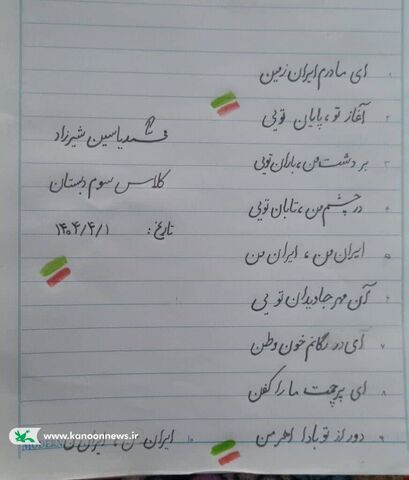 ای مادرم ایران زمین
آغاز تو، پایان تویی
بر دشت من، باران تویی
در چشم من، تابان تویی
ایران من، ایران من
آن مهر جاویدان تویی
ای در رگانم خون وطن
ای پرچمت ما را کفن
دور از تو بادا اهرمن
ایران من، ایران من
یاسین شیرزاد
کلاس سوم دبستان
تاریخ: ۱۴۰۴/۴/۱
www.kanoonnews.ir